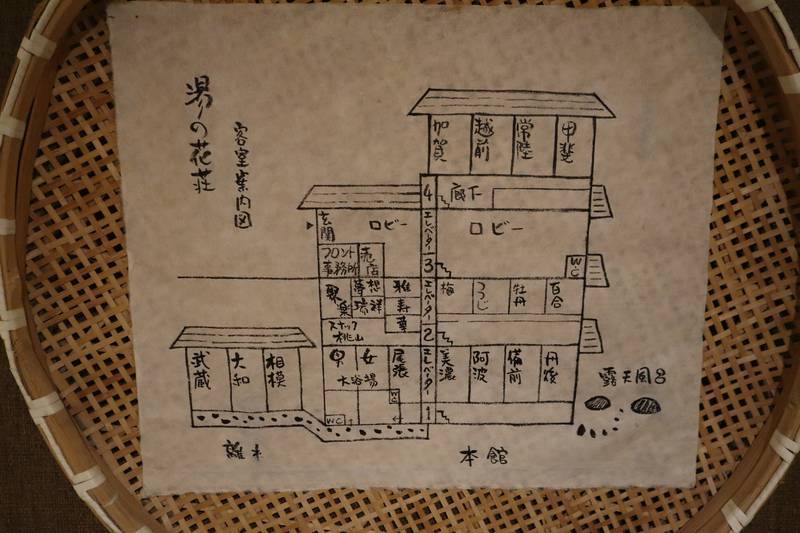 湯の花荘
客室案内図
加賀
越前
常陸
甲斐
4
廊下
玄関
ロビー
エレベーター
ロビー
フロント
事務所
売店
3
WC
聚楽
想
瑞祥
雅
寿
エレベーター
梅
つつじ
牡丹
百合
スナック
桃山
2
武蔵
大和
相模
男
女
大浴場
尾張
エレベーター
美濃
阿波
備前
丹後
露天風呂
WC
WC
1
離れ
本館